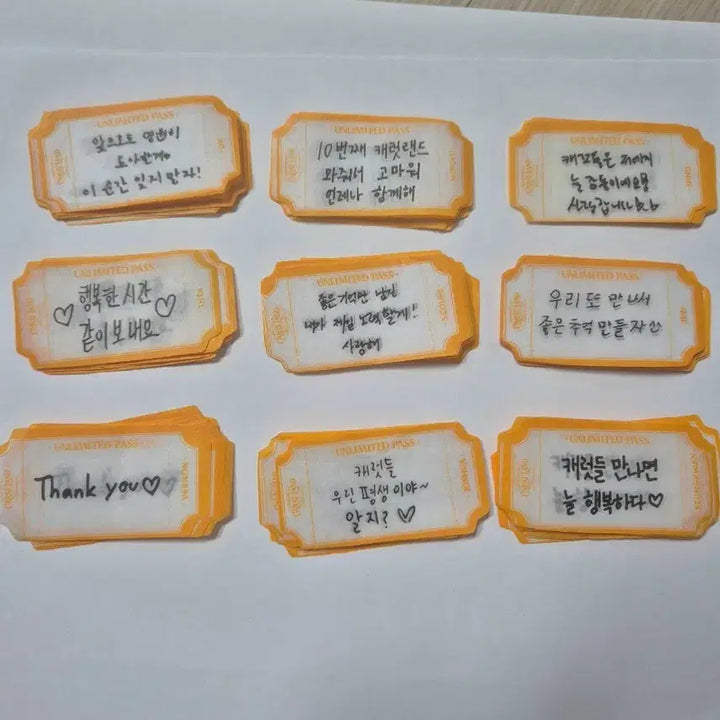 UNLIMITED PASS
앞으로도 영원히
도아할게♡
이 순간 잊지 말자!
UNLIMITED PASS
10번째 캐럿랜드
와줘서 고마워
언제나 함께해
UNLIMITED PASS
늘 감동이에요
사랑합니다
UNLIMITED PASS
♡ 행복한 시간 ♡
같이 보내요
UNLIMITED PASS
좋은 기억만 남긴
내가 제일 노력할게!!
사랑해
S.COUPS
UNLIMITED PASS
우리 또 만나서
좋은 추억 만들자
UNLIMITED PASS
Thank you♡
UNLIMITED PASS
캐럿들
우린 평생이야~
알지? ♡
UNLIMITED PASS
캐럿들 만나면
늘 행복하다♡